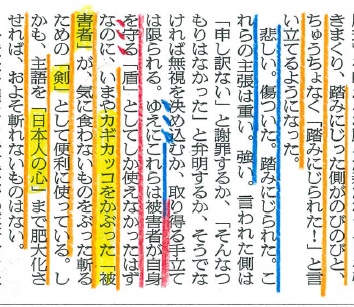 きまくり、踏みにじった側がのびのびと、
ちゅうちょなく「踏みにじられた！」と言
い立てるようになった。
　悲しい。傷ついた。踏みにじられた。こ
れらの主張は重い、強い。言われた側は
「申し訳ない」と謝罪するか、「そんなつ
もりはなかった」と弁明するか、そうでな
ければ無視を決め込むか、取り得る手立て
は限られる。ゆえにこれらは被害者が身
を守る「盾」としてしか使えなかったはず
なのに、いまやカギカッコをかぶった「被
害者」が、気に食わないものをぶった斬る
ための「剣」として便利に使っている。し
かも、主語を「日本人の心」まで肥大化さ
せれば、およそ斬れないものはない。